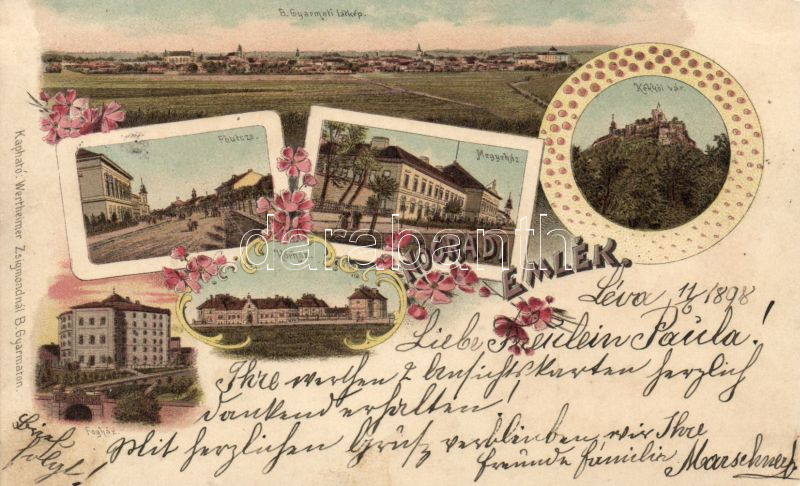 B. Gyarmati látkép.
Kékkői vár.
Főutcza.
Megyeház
NÓGRÁDI
EMLÉK.
Fogház
Kapható: Wertheimer Zsigmondnál B. Gyarmaton.
darabanth.com
Léva 11/6 1898
Liebe Fräulein Paula!
Ihre werthen 2 Ansichtskarten herzlich
dankend erhalten!
Mit herzlichen Gruß verbleiben wir Ihre
freunde familie
Brief
folgt!